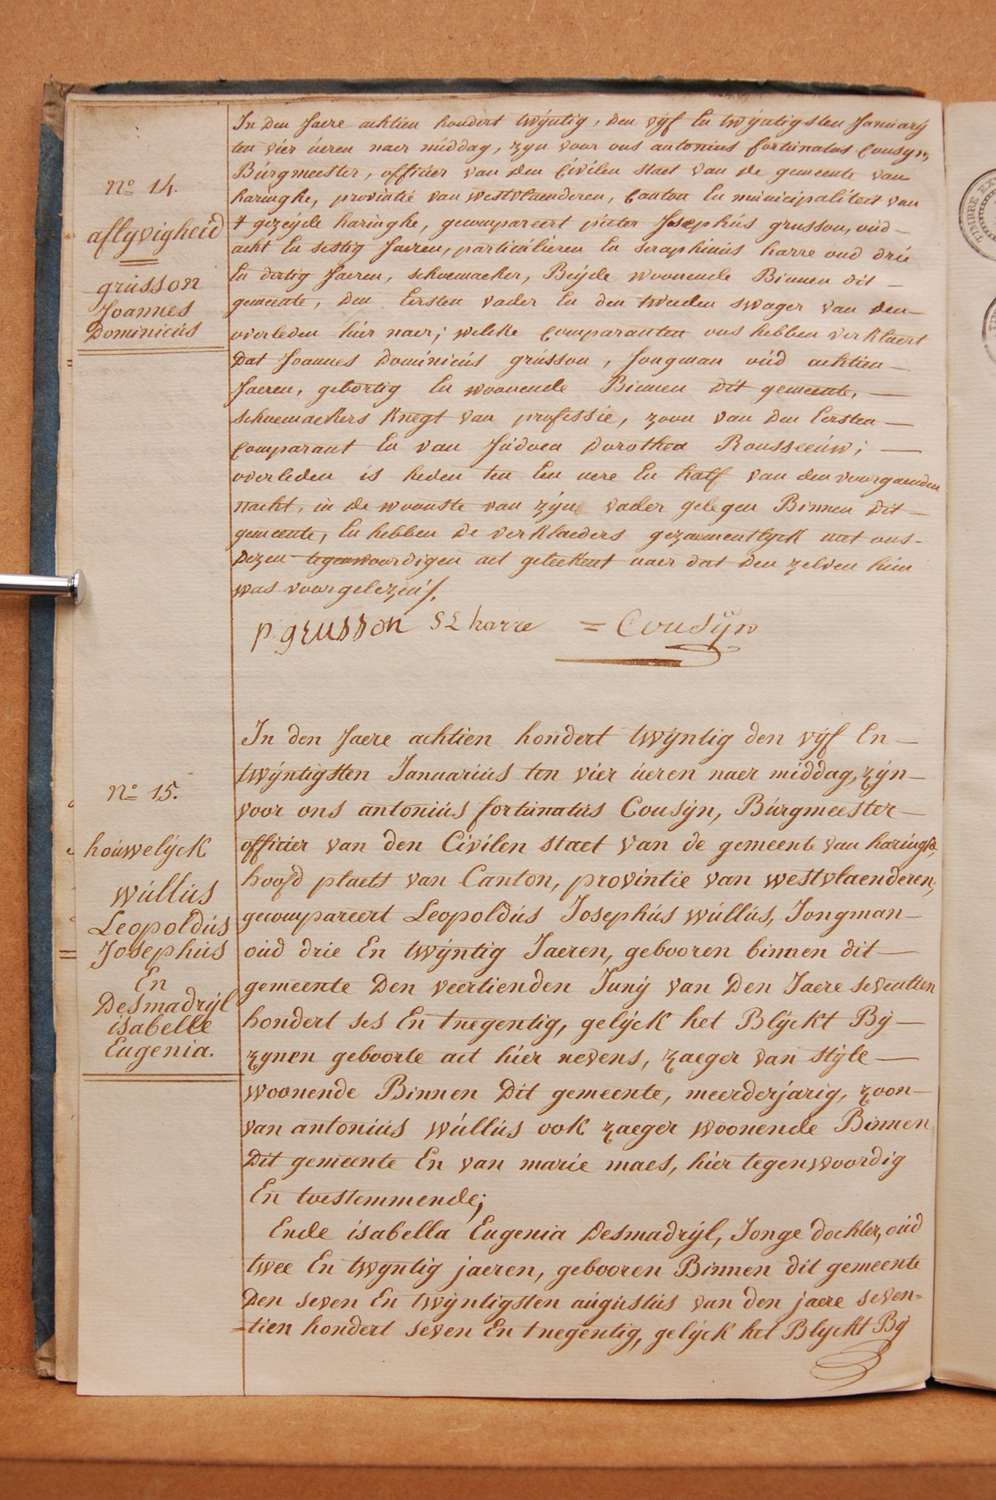 N:o 14.
aflyvigheid
grusson
Joannes
Dominicus
In den Jaere achtien hondert twÿntig, den vÿf En twÿntigsten Januarÿ
ten vier ueren naer middag, zyn voor ons antonius fortunatus Cousyn,
Burgmeester, officier van den Civilen staet van de gemeente van
haringhe, provintie van westvlaenderen, Canton En municipaliteit van
gezeyde haringhe, gecompareert pieter Josephus grusson, oud
acht En sestig Jaeren, particulieren En seraphinus harre oud drie
En dertig Jaeren, schoemaeker, Beÿde woonende Binnen dit
gemeente, den Eersten vader En den tweeden swager van den
overleden hier naer; welke Comparanten ons hebben verklaert
Dat Joannes Dominicus grusson, Jongman oud achtien
Jaeren, gebortig En woonende Binnen Dit gemeente,
schoemaekers Knegt van professie, zoon van den Eersten
Comparant En van Judoca Dorothea Rousseeuw;
overleden is heden ten Een uere En half van den voorgaenden
nacht, in de woonste van zÿn vader gelegen Binnen Dit
gemeente, En hebben De verklaeders gezaementlyck met ons
Dezen tegenwoordigen act geteekent naer dat den zelven hun
was voorgelezen.
p. grusson S L harre = Cousÿn
N:o 15.
houwelÿck
Wullus
Leopoldus
Josephus
En
Desmadrÿl
isabelle
Eugenia.
In den Jaere achtien hondert twÿntig den vÿf En
twÿntigsten Januarius ten vier ueren naer middag, zÿn
voor ons antonius fortunatus Cousÿn, Burgmeester
officier van den Civilen staet van de gemeente van haringhe,
hoofd plaets van Canton, provintie van westvlaenderen,
gecompareert Leopoldus Josephus wullus, Jongman
oud drie En twÿntig Jaeren, gebooren binnen dit
gemeente Den veertienden Junÿ van Den Jaere seventien
hondert ses En tnegentig, gelÿck het Blÿckt Bÿ
zynen geboorte act hier nevens, zaeger van stÿle
woonende Binnen Dit gemeente, meerderjarig, zoon
van antonius wullus ook zaeger woonende Binnen
Dit gemeente En van marie maes, hier tegenwoordig
En toestemmende;
Ende isabella Eugenia Desmadrÿl, Jonge dochter, oud
twee En twyntig jaeren, gebooren Binnen dit gemeente
Den seven En twÿntigsten augustus van den jaere seven=
tien hondert seven En tnegentig, gelÿck het Blyckt Bÿ